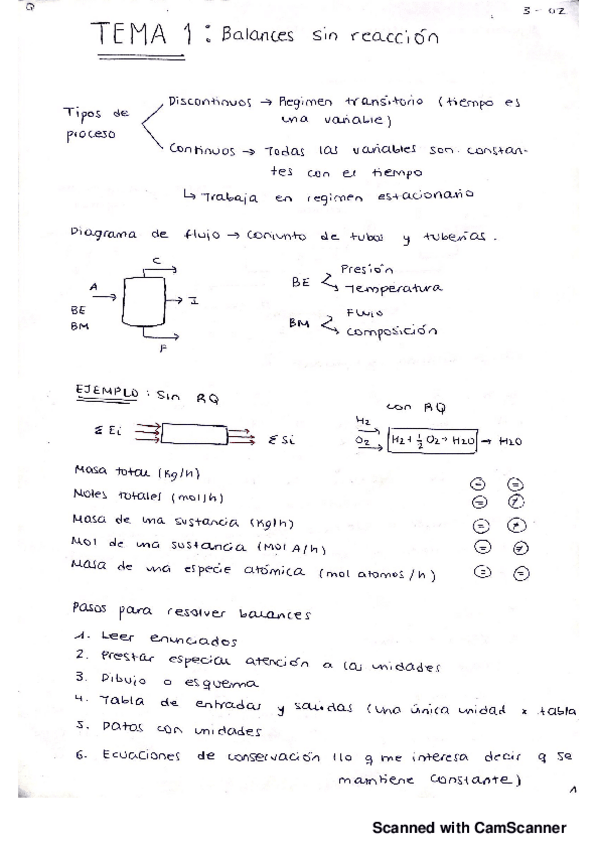 3-02
TEMA 1: Balances sin reacción
Tipos de proceso
Discontinuos → Regimen transitorio (tiempo es
una variable)
Continuos → Todas las variables son constan-
tes con el tiempo
↳ Trabaja en regimen estacionario
Diagrama de flujo → conjunto de tubos y tuberías.
C
A
I
BE
BM
P
BE
Presión
Temperatura
BM
Flujo
composición
EJEMPLO: Sin RQ
con RQ
Σ Ei
Σ Si
H2
O2
H2 + 1/2 O2 → H2O
→ H2O
Masa total (Kg/h) = =
Moles totales (mol/h) = ≠
Masa de una sustancia (Kg/h) = ≠
Mol de una sustancia (Mol A/h) = ≠
Masa de una especie atómica (mol atomos/h) = =
Pasos para resolver balances
1. Leer enunciados
2. Prestar especial atención a las unidades
3. Dibujo o esquema
4. Tabla de entradas y salidas (una única unidad x tabla
5. Datos con unidades
6. Ecuaciones de conservación (lo q me interesa decir q se
mantiene constante)
1
Scanned with CamScanner